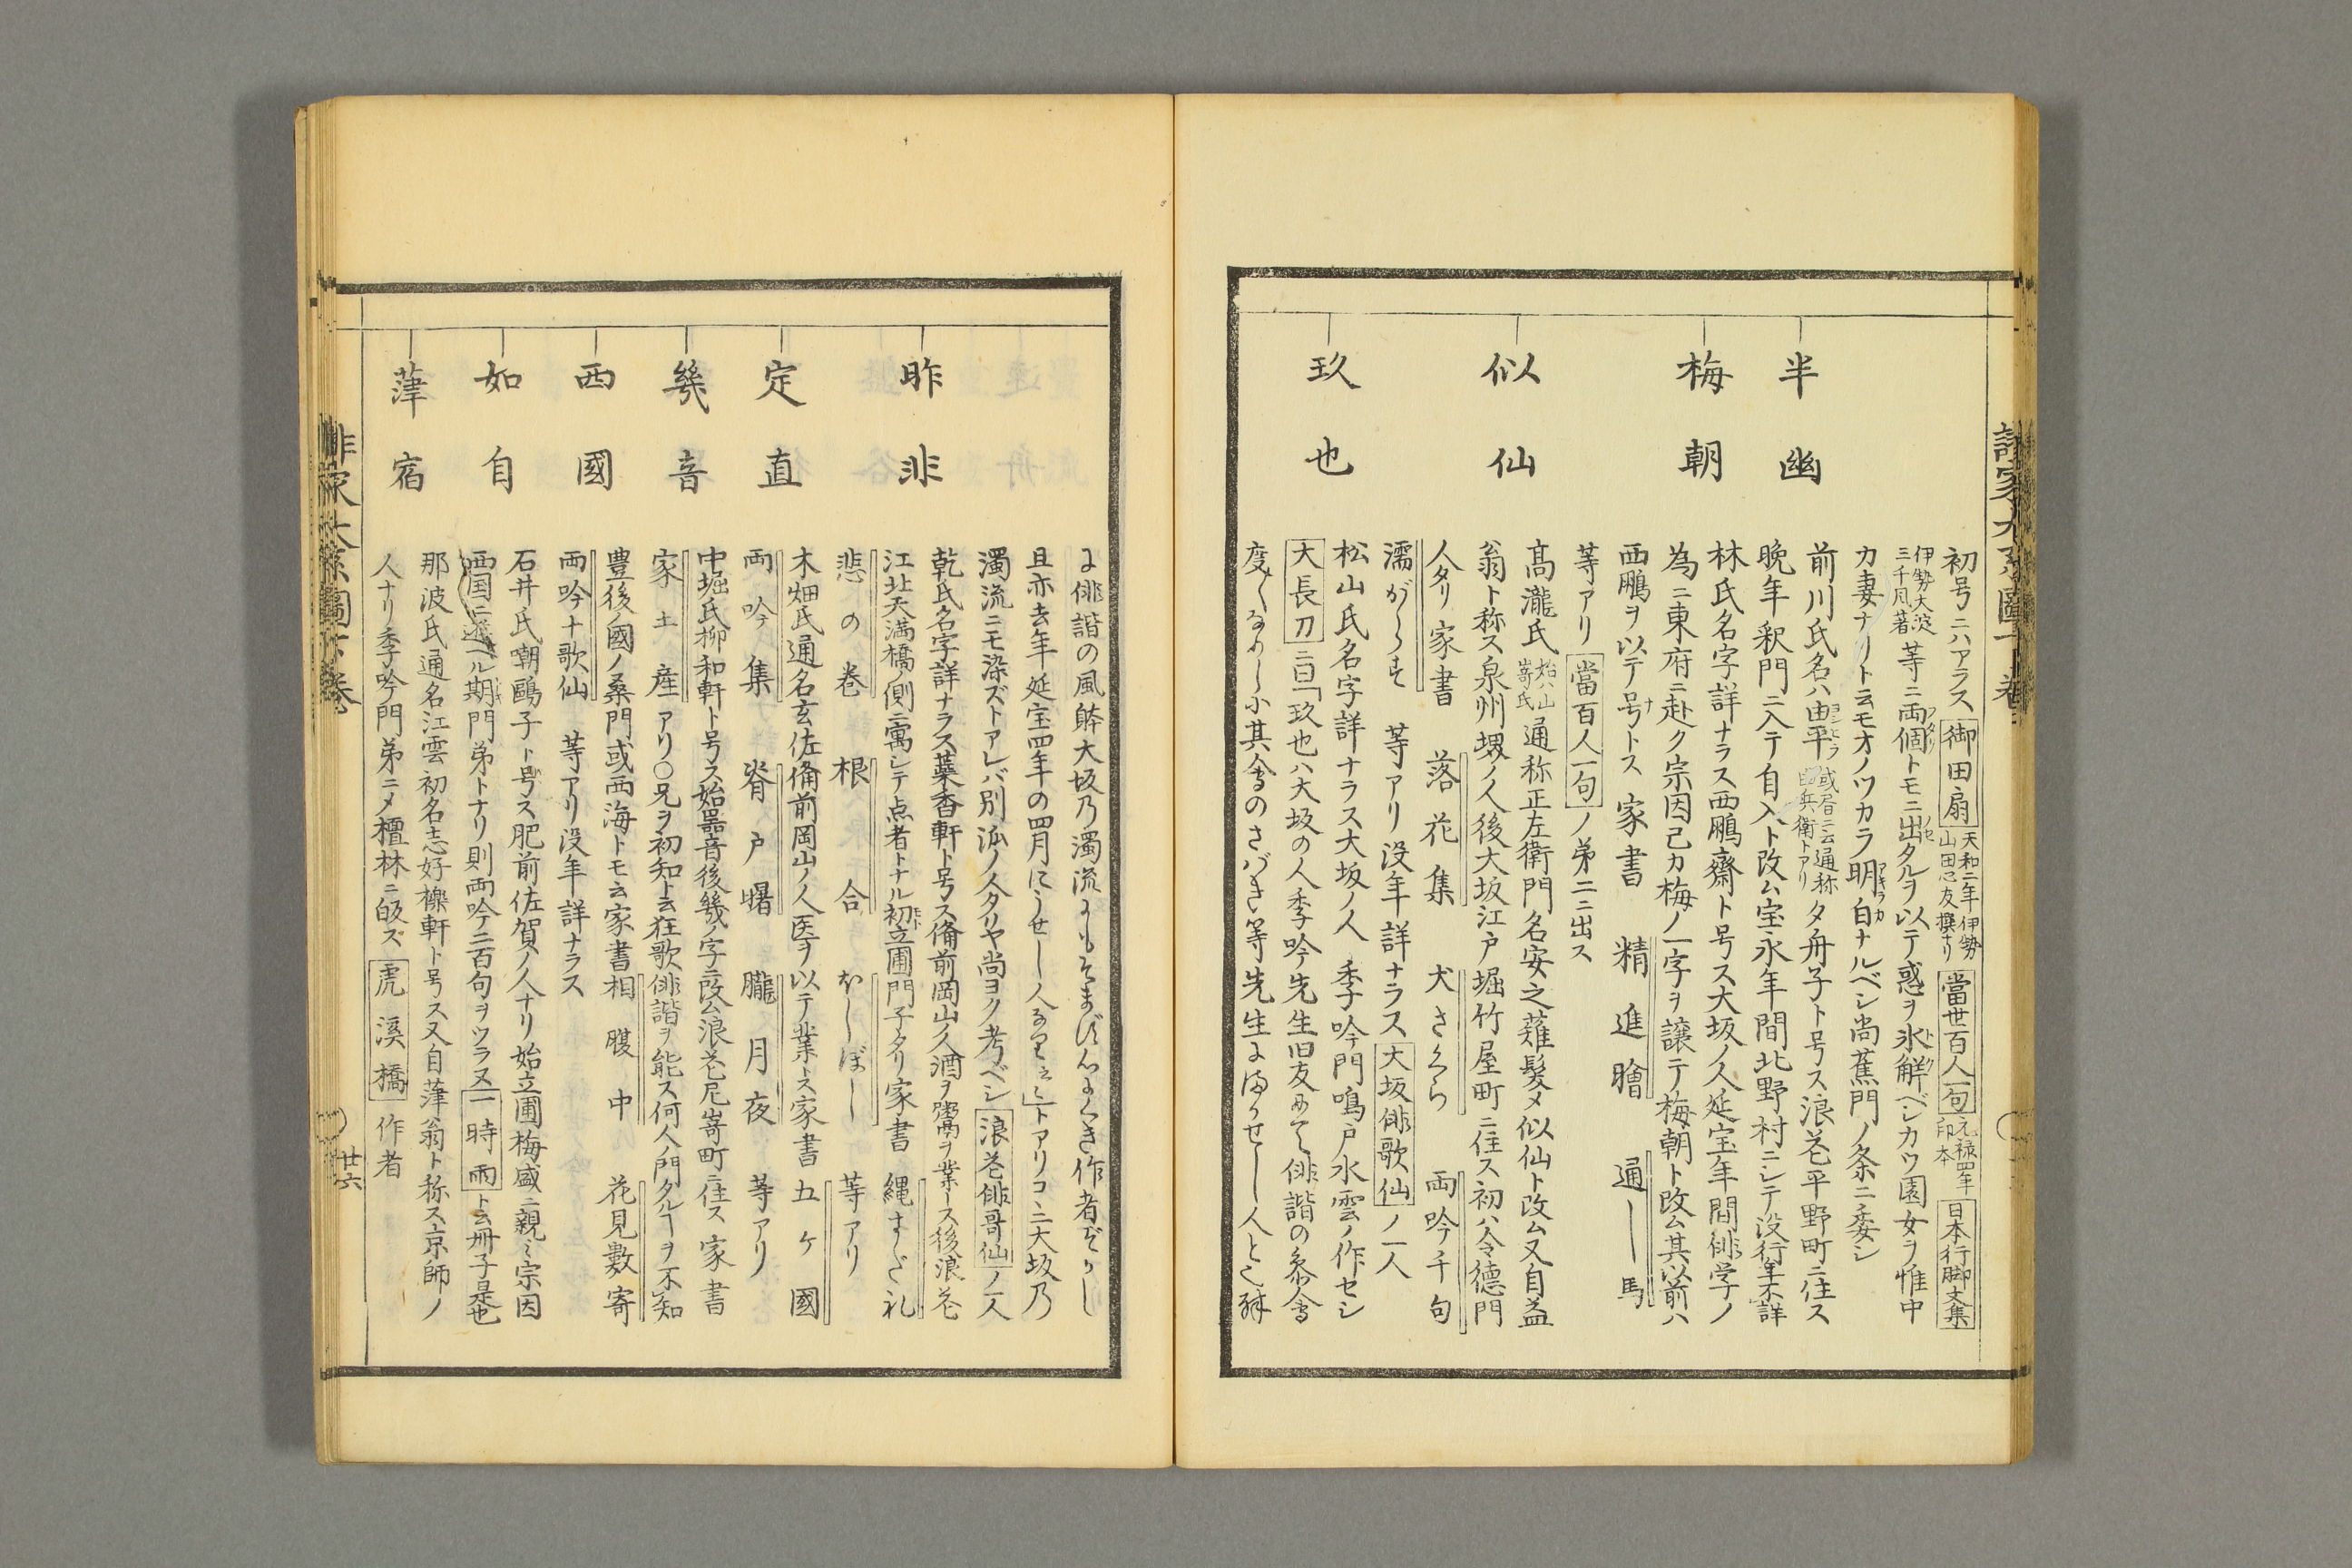 初号ニハアラス 御田扇 天和二年伊勢山田 友撰ナリ 當世百人一句 元禄四年印本 日本行脚文集
伊勢大淀三千風著 等ニ両個トモニ出タルヲ以テ惑ヲ氷解ベシカツ園女ヲ惟中
カ妻ナリト云モオノツカラ明白ナルベシ尚蕉門ノ条ニ委シ
半幽 前川氏名ハ由平 或書ニ云通称 兵衛トアリ 夕舟子ト号ス浪花平野町ニ住ス
晩年釈門ニ入テ自入ト改ム宝永年間北野村ニシテ没行年不詳
梅朝 林氏名字詳ナラス西鵬齋ト号ス大坂ノ人延宝年間俳学ノ
為ニ東府ニ赴ク宗因己カ梅ノ一字ヲ譲テ梅朝ト改ム其以前ハ
西鵬ヲ以テ号トス 家書 精進膾 通し馬
等アリ 當百人一句 ノ弟ニニ出ス
似仙 髙瀧氏 始ハ山嵜氏 通称正左衛門名安之薙髪〆似仙ト改ム又自益
翁ト称ス泉州堺ノ人後大坂江戸堀竹屋町ニ住ス初ハ令徳門
人タリ家書 落花集 犬さくら 両吟千句
濡がらす 等アリ没年詳ナラス 大坂俳歌仙 ノ一人
玖也 松山氏名字詳ナラス大坂ノ人 季吟門鳴戸水雲ノ作セシ
大長刀 ニ曰「玖也ハ大坂の人季吟先生旧友にて俳諧の参會
度〻なりし小其會のさばき等先生にまかせし人と也殊
に俳諧の風躰大坂乃濁流にもそまず心にくき作者ぞかし
且亦去年延宝四年の四月にうせし人なりと云〻」トアリコヽニ大坂乃
濁流ニモ染ズトアレバ別派ノ人タリヤ尚ヨク考ベシ 浪花俳哥仙 ノ一人
昨非 乾氏名字詳ナラス藥香軒ト号ス備前岡山ノ人酒ヲ鬻ヲ業トス後浪花
江北天満橋ノ側ニ寓シテ点者トナル初立圃門子タリ家書 縄すだれ
悲の巻 根合 おしぼし 等アリ
定直 木畑氏通名玄佐備前岡山ノ人医ヲ以テ業トス家書 五ヶ國
両吟集 脊戸曙 朧月夜 等アリ
幾音 中堀氏柳和軒ト号ス始器音後幾ノ字ニ改ム浪花尼嵜町ニ住ス 家書
家土産 アリ〇兄ヲ初知ト云狂歌俳諧ヲ能ス何人ノ門タルヿヲ不知
西國 豊後ノ國ノ桑門或西海トモ云家書相腹中 花見數寄
両吟十歌仙 等アリ没年詳ナラス
如自 石井氏嘲鷗子ト号ス肥前佐賀ノ人ナリ始立圃梅盛ニ親ミ宗因
西国ニ遊ヘル期門弟トナリ則両吟ニ百句ヲツラヌ 一時雨 ト云冊子是也
葏宿 那波氏通名江雲初名志好檪軒ト号ス又自葏翁ト称ス京師ノ
人ナリ季吟門弟ニ〆檀林ニ皈ズ 虎溪橋 作者
誹家大系圖下巻
俳家大系圖下巻
廿六